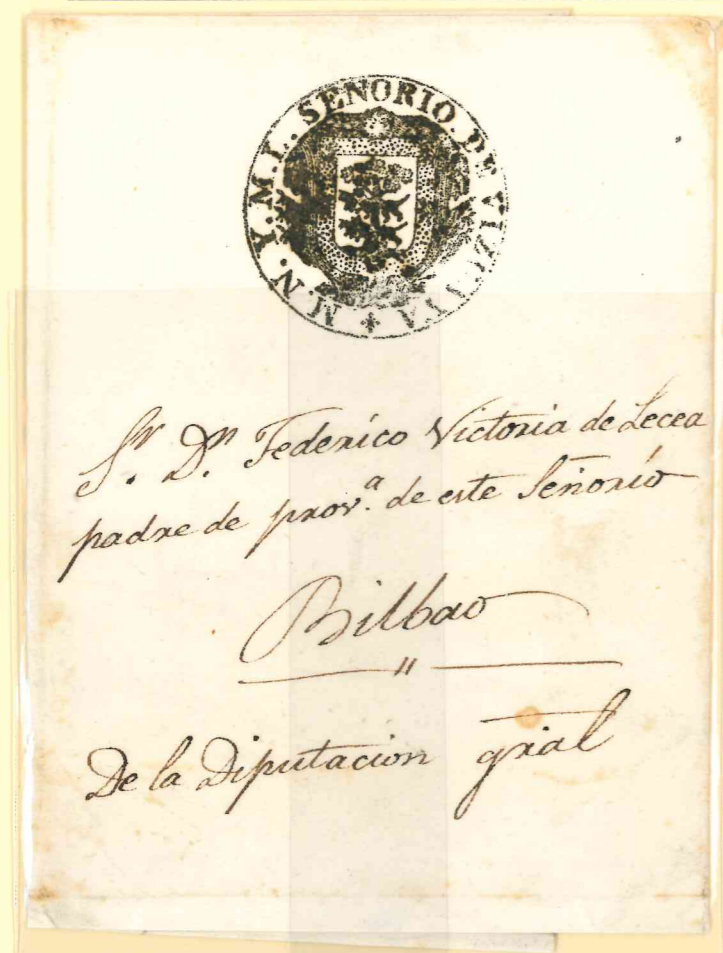 M.N.Y.M.L. SENORIO. DE VIZCAYA
Sr. Dn. Federico Victoria de Lecea
padre de prov.a de este Señorío
Bilbao
"
De la Diputacion gral